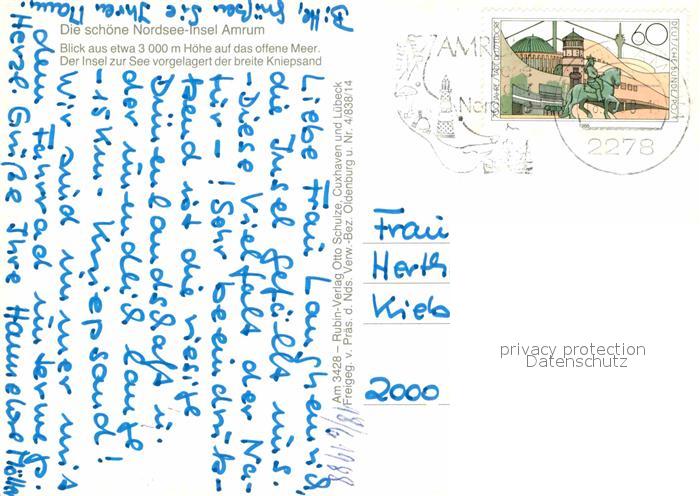 Bitte, grüßen Sie Ihren Mann.
Die schöne Nordsee-Insel Amrum
Blick aus etwa 3 000 m Höhe auf das offene Meer.
Der Insel zur See vorgelagert der breite Kniepsand
Liebe Frau
die Insel gefällt uns.
- Diese Vielfalt der Na-
tur - ! Sehr beeindruk-
kend ist die riesige
Dünenlandschaft u.
der unendlich lange
- 15 km - Kniepsand!
Wir sind immer mit
dem Fahrrad unterwegs.
Herzl. Grüße Ihre Hannelore
18/6.1988
Am 3428 – Rubin-Verlag Otto Schulze, Cuxhaven und Lübeck
Freigeg. v. Präs. d. Nds. Verw.-Bez. Oldenburg u. Nr. 4/838/14
750 JAHRE STADT DÜSSELDORF
60
DEUTSCHE BUNDESPOST
AMR
Nor
2278
Frau
Herth
Kieb
2000
privacy protection
Datenschutz